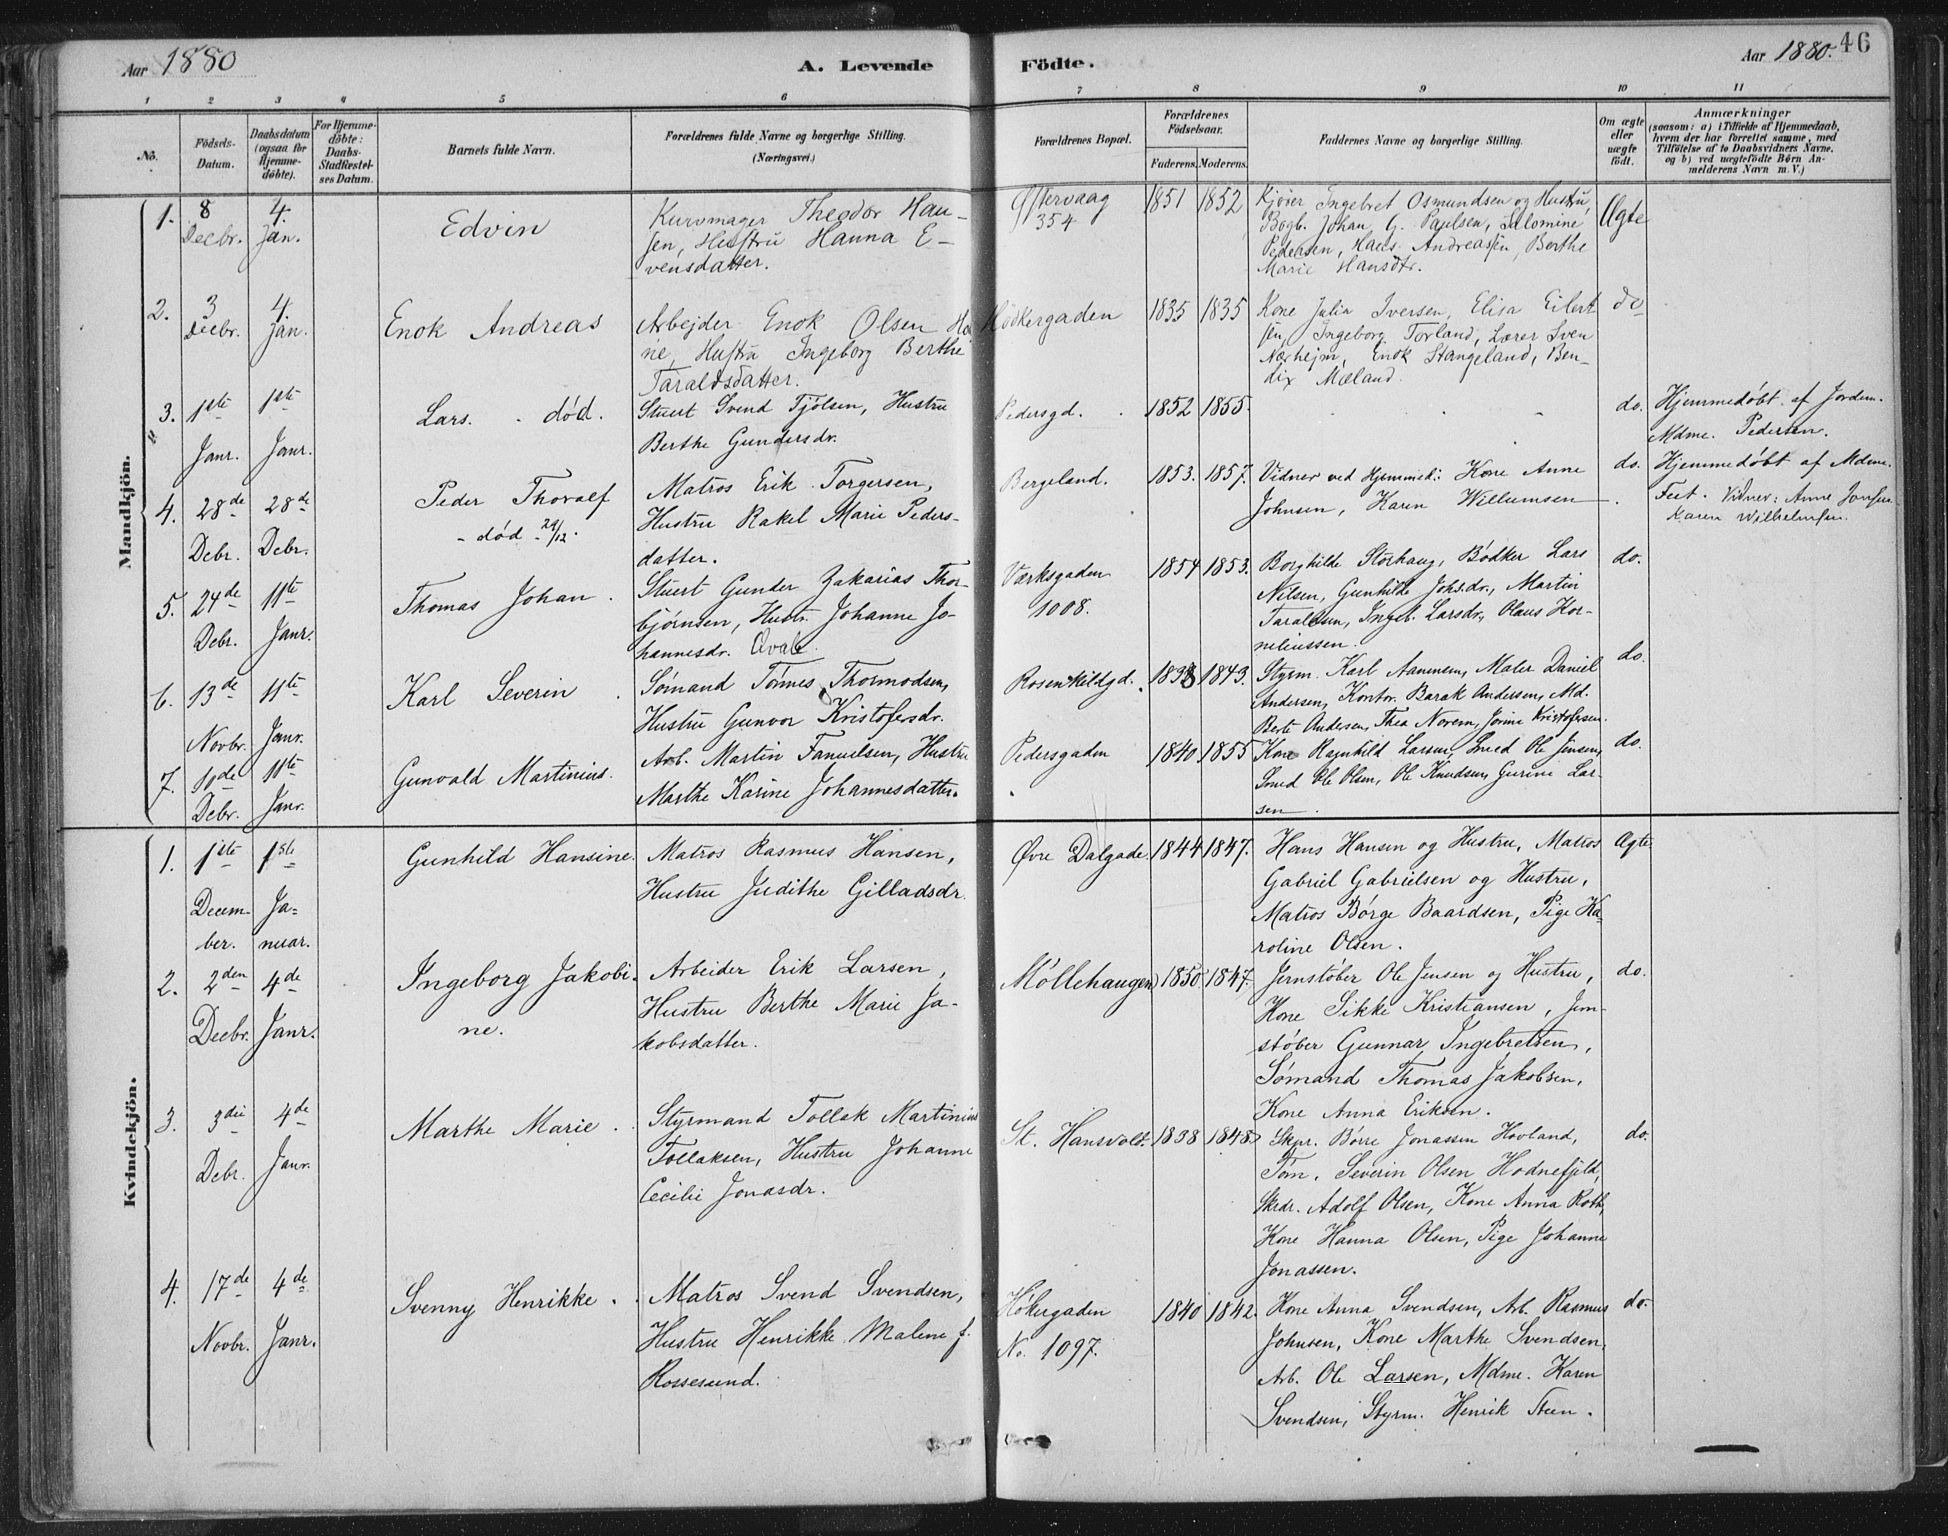 Aar 1880
A. Levende
Födte.
Aar 1880.
46
1 2 3 4 5 6 7 8 9 10 11
No.
Födsels-
Datum.
Daabsdatum
(ogsaa for
Hjemme-
döbte).
For Hjemme-
döbte:
Daabs-
Stadfæstel-
ses Datum.
Barnets fulde Navn.
Forældrenes fulde Navne og borgerlige Stilling.
(Næringsvei.)
Forældrenes Bopæl.
Forældrenes
Födselsaar.
Faderens. Moderens.
Faddernes Navne og borgerlige Stilling.
Om ægte
eller
uægte
födt.
Anmærkninger
(saasom: a) i Tilfælde af Hjemmedaab,
hvem der har forrettet samme, med
Tilföielse af to Daabsvidners Navne.
og b) ved uægtefödte Börn An-
melderens Navn m. V.)
Mandkjön.
1.
8
Decbr.
4.
Jan.
Edvin
Kurvmager Theodor Han-
sen, Hustru Hanna E-
vensdatter.
Østervaag
354
1851 1852
Kjører Ingebret Osmundsen og Hustru,
Bogb. Johan G. Paulsen, Salomine
Pedersen, Hans Andreassen, Berthe
Marie Hansdtr.
Ægte
2.
3
Decbr.
4
Jan.
Enok Andreas
Arbejder Enok Olsen Ha
ne, Hustru Ingeborg Berthe
Taraldsdatter.
Hödkergaden
1835 1835
Kone Julia Iversen, Elisa Eilert
sen, Ingeborg Torland, Lærer Sven
Nærhejm, Enok Stangeland, Ben-
dix Mæland.
do
3.
1ste
Janr.
1ste
Janr.
Lars. - død.
Stuert Svend Tjølsen, Hustru
Berthe Gundersdr.
Pedersgd.
1852 1855.
do.
Hjemmedøbt af Jordem.
Mdme. Pedersen.
4.
28de
Debr.
28de
Debr.
Peder Thoralf
- død 29/12.
Matros Erik Torgersen,
Hustru Rakel Marie Peders-
datter.
Bergeland.
1853. 1857.
Vidner ved Hjemmed.: Kone Anne
Johnsen, Karen Willumsen
do.
Hjemmedøbt af Mdme.
Feet. Vidner: Anne Jonsen
Karen Wilhelmsen.
5.
24de
Debr.
11te
Janr.
Thomas Johan.
Stuert Gunder Zakarias Thor-
bjørnsen, Hustr. Johanne Jo-
hannesdr. Qvale.
Værksgaden
1008.
1854 1853.
Borghilde Storhaug, Bødker Lars
Nilsen, Gunhilde Johsdr., Martin
Taraldsen, Ingeb. Larsdr., Olaus Kor-
neliussen.
do.
6.
13de
Novbr.
11te
Janr.
Karl Severin
Sømand Tønnes Thormodsen,
Hustru Gunvor Kristofersdr.
Rosenkildgd.
1838 1843.
Styrm. Karl Aanensen, Maler Daniel
Andersen, Kontor. Barak Andersen, Md.
Berte Andersen, Thea Norem, Jorine Kristofersen.
do.
7.
10de
Debr.
11te
Janr.
Gunvald Martinius.
Arb. Martin Fanuelsen, Hustru
Marthe Karine Johannesdatter.
Pedersgaden
1840 1855
Kone Ragnhild Larsen, Smed Ole Jensen,
Smed Ole Olsen, Ole Knudsen, Gurine Lar-
sen.
do.
Kvindekjön.
1.
1ste
Decem-
ber.
1ste
Ja-
nuar.
Gunhild Hansine.
Matros Rasmus Hansen,
Hustru Judithe Gilladsdr.
Øvre Dalgade.
1844 1847.
Hans Hansen og Hustru, Matros
Gabriel Gabrielsen og Hustru,
Matros Børge Baardsen, Pige Ka-
roline Olsen.
Ægte
2.
2den
Decbr.
4de
Janr.
Ingeborg Jakobi-
ne.
Arbeider Erik Larsen,
Hustru Berthe Marie Ja-
kobsdatter.
Møllehaugen
1850 1847.
Jernstøber Ole Jensen og Hustru,
Kone Sikke Kristiansen, Jern-
støber Gunnar Ingebretsen,
Sømand Thomas Jakobsen,
Kone Anna Eriksen.
do.
3.
3die
Debr.
4de
Janr.
Marthe Marie.
Styrmand Tollak Martinius
Tollaksen, Hustru Johanne
Cecilie Jonasdr.
St. Hansvolt.
1838 1848.
Skpr. Børre Jonassen Hovland,
Tøm. Severin Olsen Hodnefjeld,
Skrdr. Adolf Olsen, Kone Anna Roth,
Kone Hanna Olsen, Pige Johanne
Jonassen.
do.
4.
17de
Novbr.
4de
Janr.
Svenny Henrikke.
Matros Svend Svendsen,
Hustru Henrikke Malene f.
Rossesund.
Høkergaden
No. 1097.
1840 1842.
Kone Anna Svendsen, Arb. Rasmus
Johnsen, Kone Marthe Svendsen,
Arb. Ole Larsen, Mdme. Karen
Svendsen, Styrm. Henrik Steen.
do.